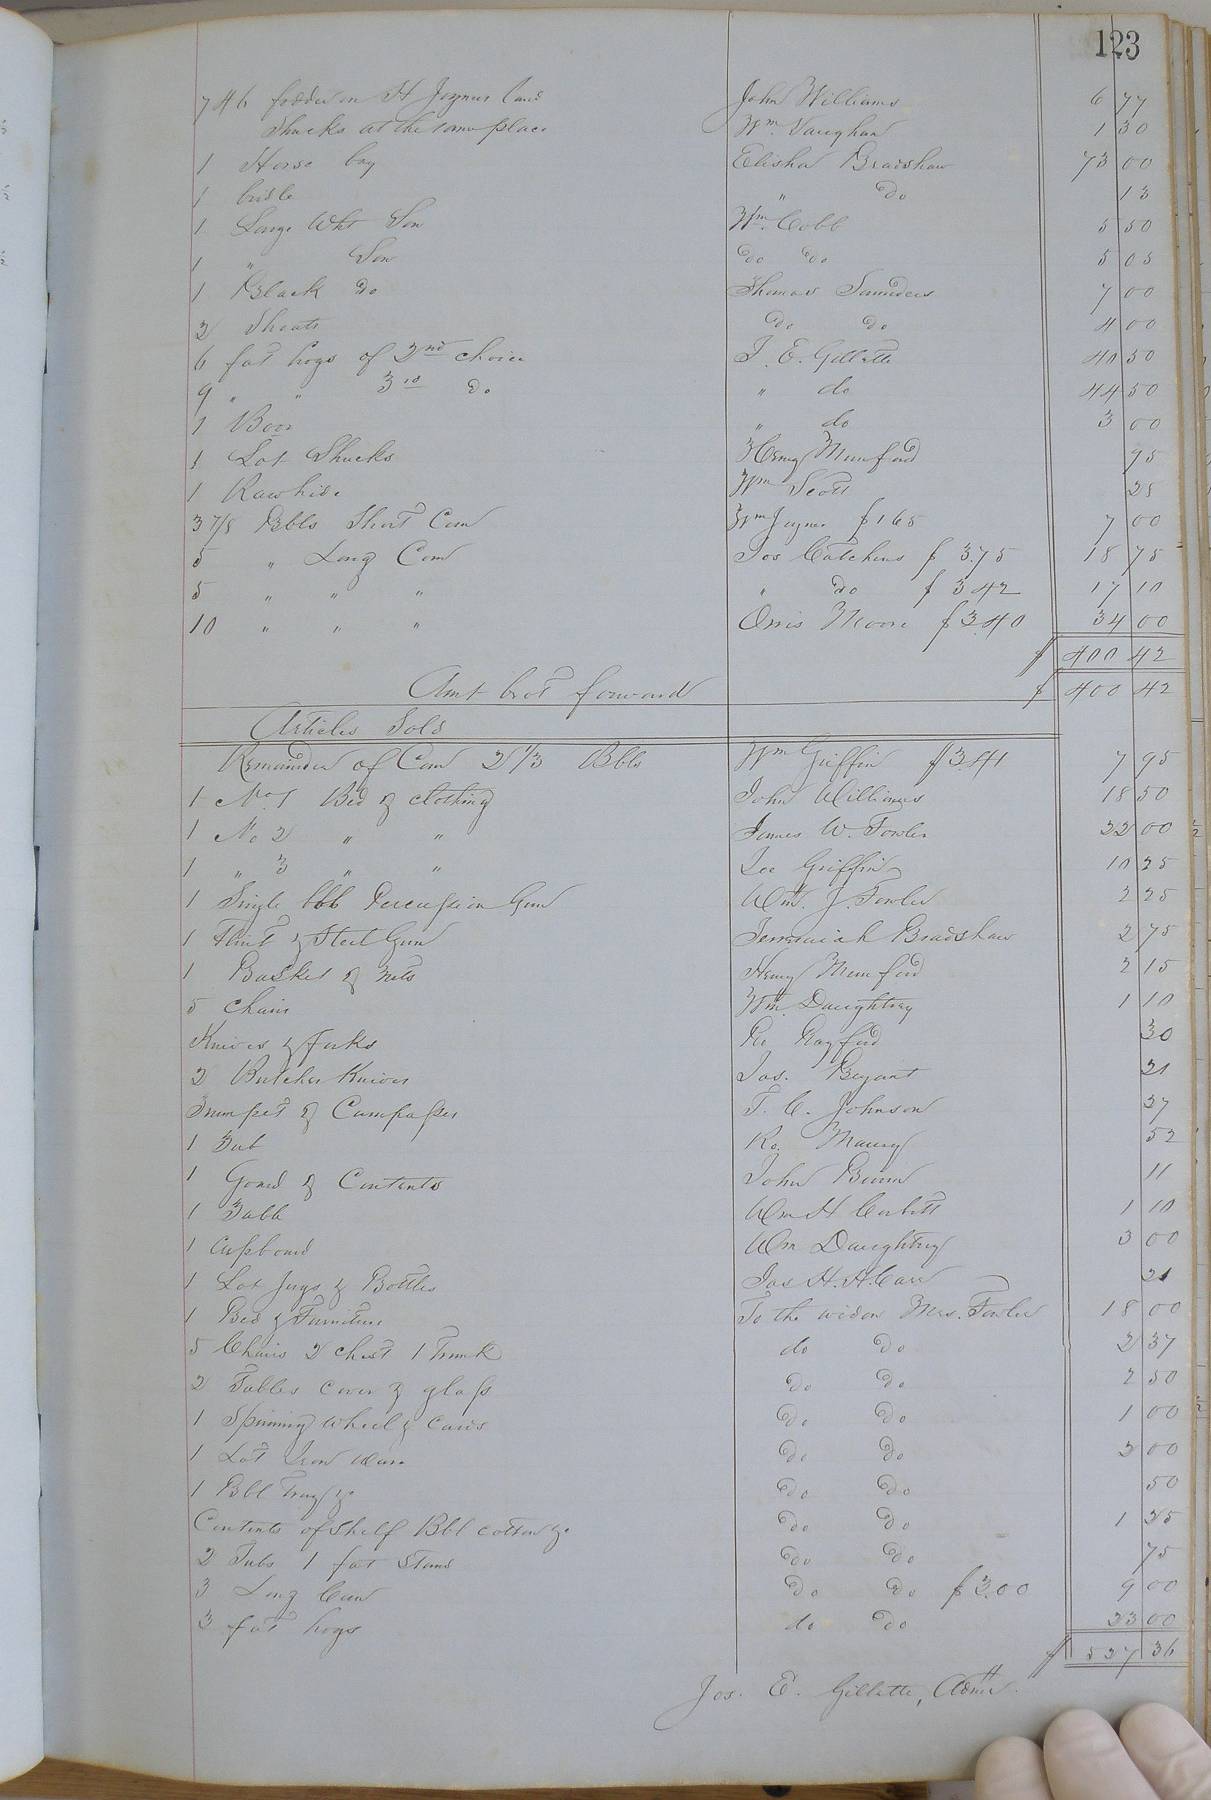 123
746 fodder on H Joyners land John Williams 6 77
Shucks at the same place Wm. Vaughan 1 30
1 Horse bay Elisha Bradshaw 73 00
1 bridle " do 13
1 Large Wht Sow Wm. Cobb 5 50
1 " Sow do do 5 05
1 Black do Thomas Saunders 7 00
2 Shoats do do 4 00
6 fat hogs of 2nd choice J. E. Gillette 40 50
9 " " 3rd do " do 44 50
1 Boar " do 3 00
1 Lot Shucks Henry Mumford 95
1 Rawhide Wm Scott 25
3 7/8 Bbls Short Corn Wm Joyner $1 65 7 00
5 " Long Corn Jos Catchins $ 3.75 18 75
5 " " " " do $ 3 42 17 10
10 " " " Orris Moore $ 3.40 34 00
$ 400 42
Amt brot forward $ 400 42
Articles Sold
Remainder of Corn 2 1/3 Bbls Wm Griffin $3.41 7 95
1 No 1 Bed & clothing John Williams 18 50
1 No 2 " " James W. Fowler 22 00
1 " 3 " " Lee Griffin 10 25
1 Single bbl Percussion Gun Wm. J. Fowler 2 25
1 Flint & Steel Gun Jeremiah Bradshaw 2 75
1 Basket & Nets Henry Mumford 2 15
5 chairs Wm. Daughtrey 1 10
Knives & forks 30
2 Butcher Knives Jas. Bryant 21
Trumpet & Compasses T. C. Johnson 37
1 Tub Ro. Maury 52
1 Gourd & Contents John Bunn 11
1 Table Wm H Corbitt 1 10
1 Cupboard Wm Daughtrey 3 00
1 Lot Jugs & Bottles Jas H. H. Carr 21
1 Bed & Furniture To the widow Mrs. Fowler 18 00
5 Chairs 2 chest 1 Trunk do do 2 37
2 Tables cover & glass do do 2 50
1 Spinning wheel & cards do do 1 00
1 Lot Iron ware do do 2 00
1 Bbl Tray &c do do 50
Contents of shelf Bbl cotton &c do do 1 25
2 Tubs 1 fat Stand do do 75
3 Long Corn do do $ 3.00 9 00
3 fat hogs do do 23 00
$ 527 36
Jos. E. Gillette, Admr.